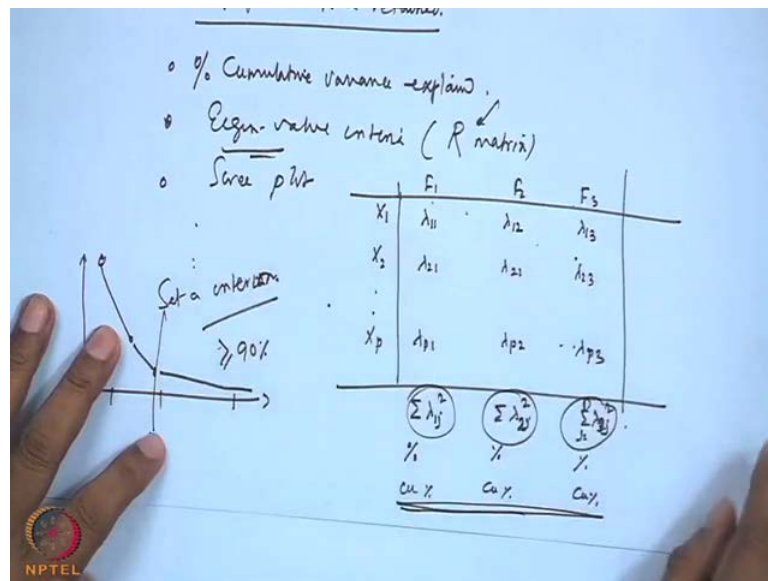 retained.
• % Cumulative variance explain.
• Eigen-value criteria ( R matrix)
• Scree plot
Set a criterion
≥ 90%
F₁ F₂ F₃
X₁ λ₁₁ λ₁₂ λ₁₃
X₂ λ₂₁ λ₂₂ λ₂₃
Xₚ λₚ₁ λₚ₂ λₚ₃
Σλ₁ⱼ² Σλ₂ⱼ²
% % %
Cu % Cu % Cu %
NPTEL